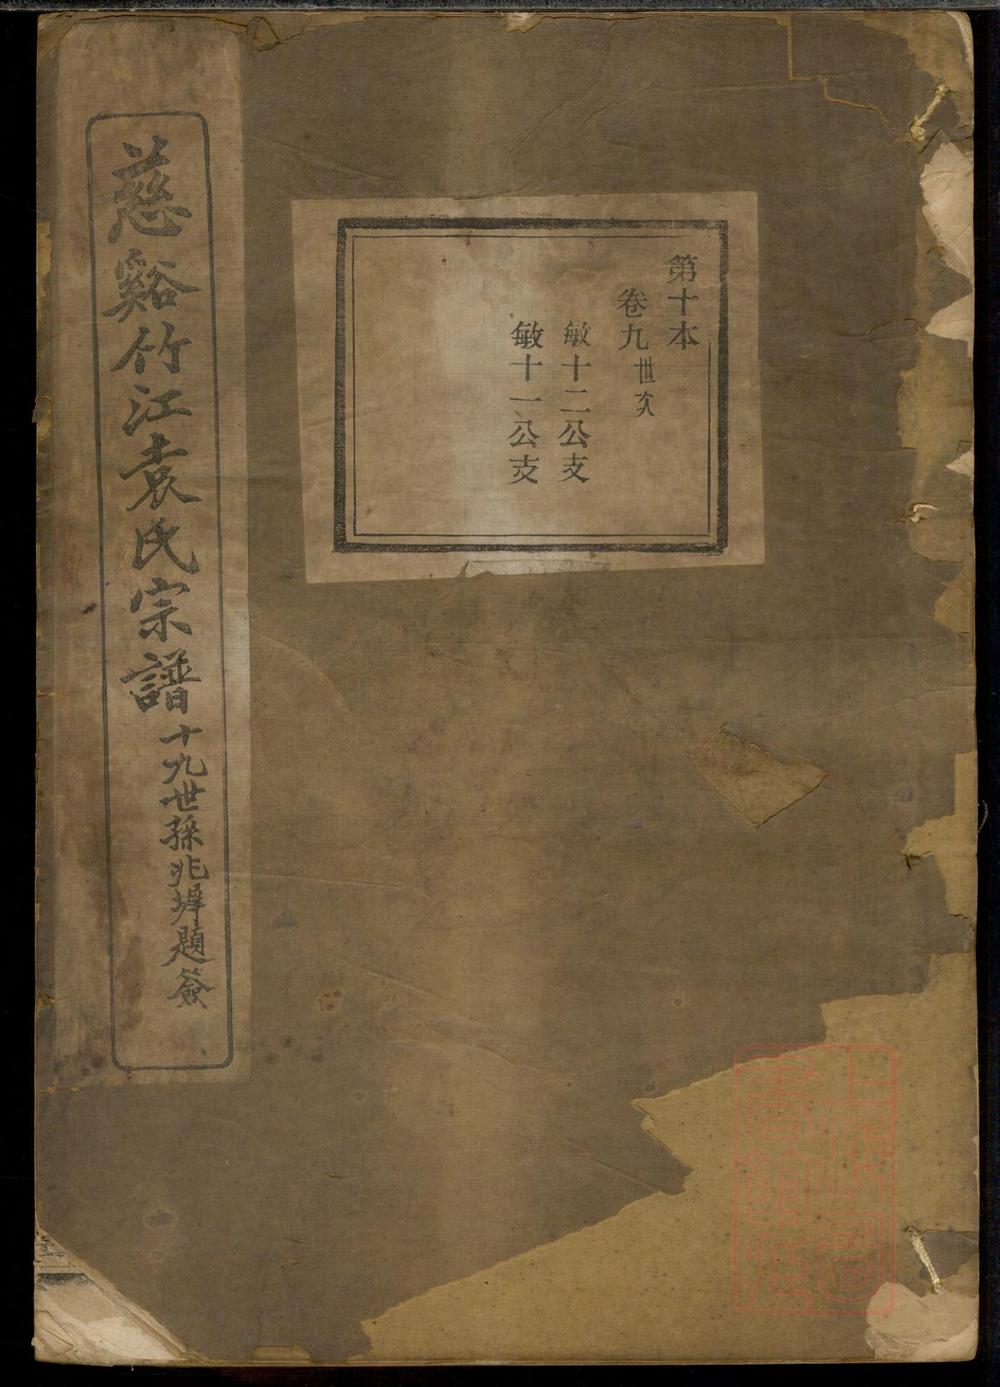 第十本
卷九世次
敏十二公支
敏十一公支
慈谿竹江袁氏宗譜
十九世孫兆墀題簽
上海圖書館藏